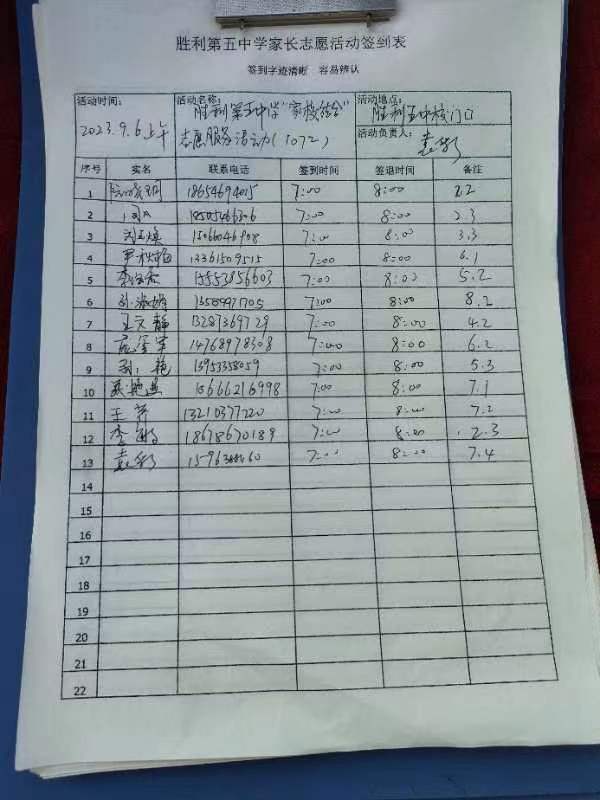 胜利第五中学家长志愿活动签到表
签到字迹清晰 容易辨认
活动时间: 2023.9.6上午 活动名称: 胜利第五中学"家校结合"志愿服务活动(1072) 活动地点: 胜利五中校门口
活动负责人: 袁彩
序号 实名 联系电话 签到时间 签退时间 备注
1 18654694015 7:00 8:00 2.2
2 7:00 8:00 2.3
3 7:00 8:00 3.3
4 13361509515 7:00 8:00 6.1
5 7:00 8:00 5.2
6 7:00 8:00 8.2
7 王文静 13287369729 7:00 8:00 4.2
8 14768978308 7:00 8:00 6.2
9 艳 15953358059 7:00 8:00 5.3
10 15666216998 7:00 8:00 7.1
11 13210377220 7:00 8:00 7.2
12 李 18678670189 7:00 8:00 2.3
13 袁彩 7:00 8:00 7.4
14
15
16
17
18
19
20
21
22